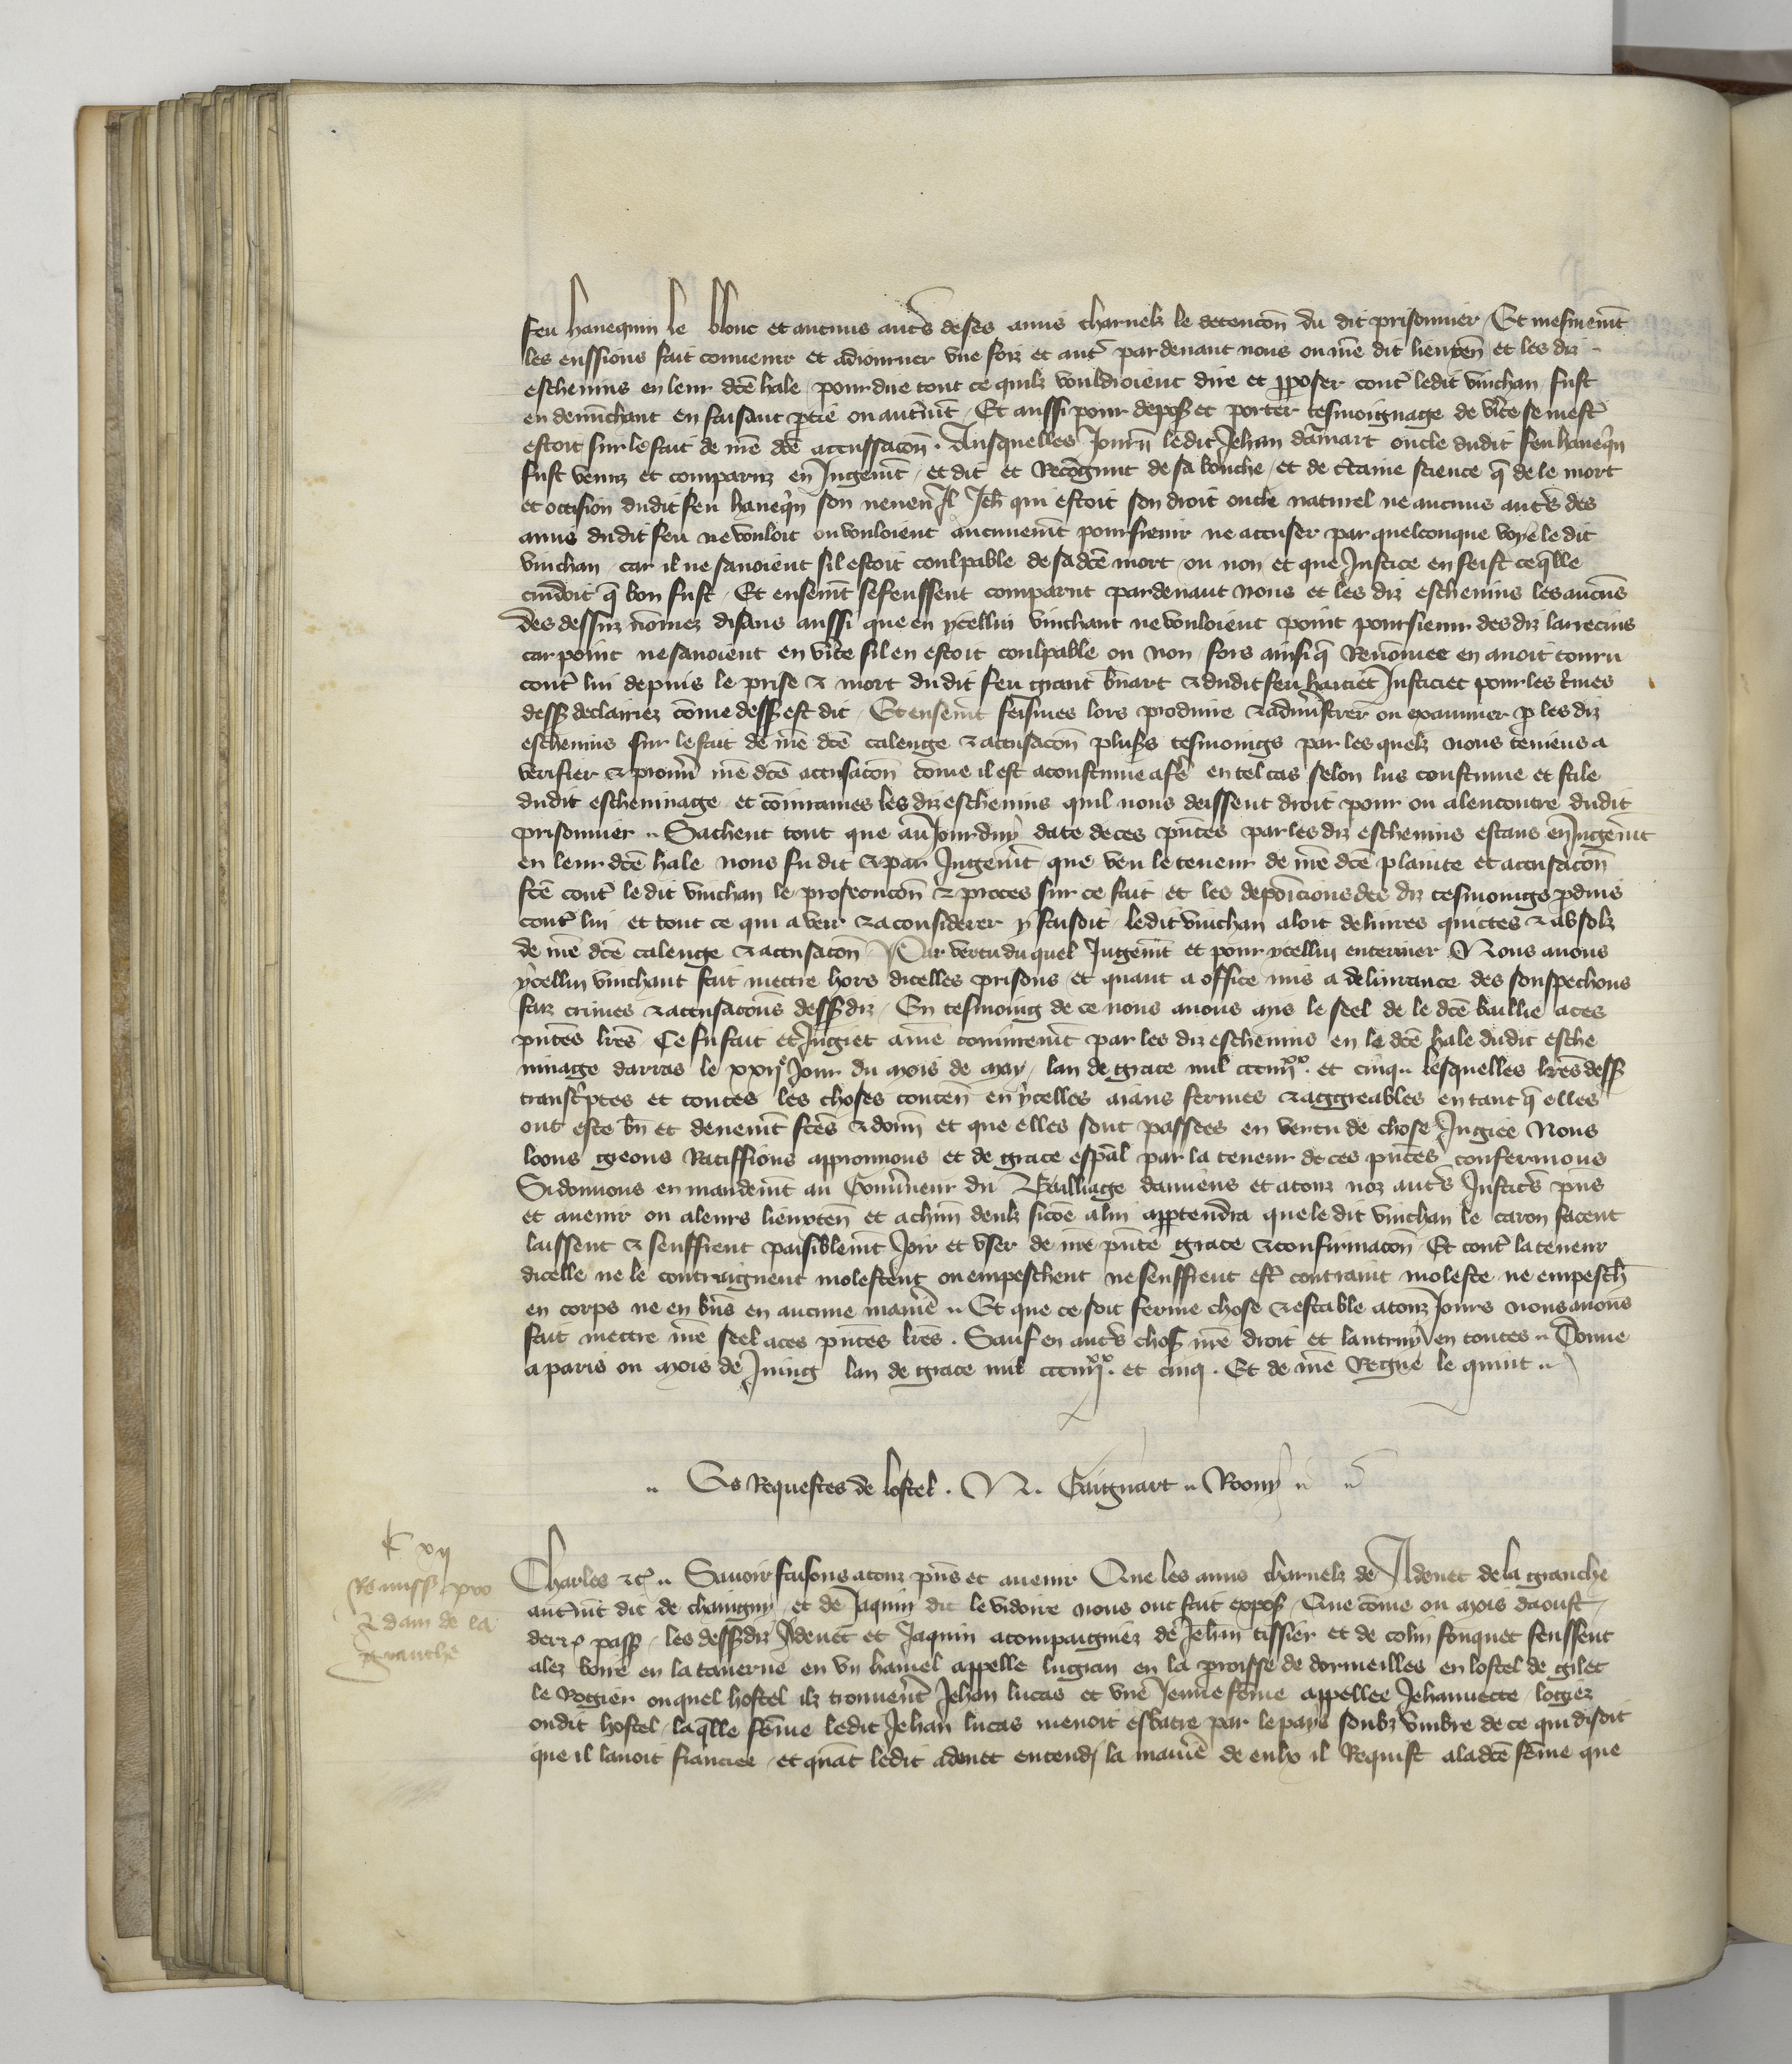 feu hanequin le blont et aucuns autrs de ses amis charnelz le detencon du dit prisonnier / Et mesmemt
les eussions fait convenir et adiourner une foiz et autr par devant nous ou nre dit lieuten et les diz
eschevins en leur dce hale pour dire tout ce quilz vouldroient dire et pposer contr ledit vinchan fust
en denuchant en faisant ptie ou autremt / Et aussi pour depos et porter tesmoignage de vite se mestr
estoit sur le fait de nre dce accussacon . Ausquelles Journ ledit Jehan damart oncle dudit feu haneqn
fust venuz et comparuz en Jugemt et dit et Recognut de sa bouche et de ctaine science q de le mort
et occision dudit feu haneqn son neveu Il Jeh qui estoit son droit oncle naturel ne aucuns autrs des
amis dudit feu ne vouloit ou vouloient aucunemt poursievir ne accuser par quelconque voye le dit
vinchan car il ne savoient sil estoit coulpable de sa dce mort ou non et que Justice en feist ce qlle
cuidoit q bon fust / Et ensemt se feussent comparut par devant nous et les diz eschevins les aucuns
des dessuz nomez disans aussi que en ycellui vinchant ne vouloient point poursievir des diz larrecins
car point ne savoient en vite sil en estoit coulpable ou non fors ainsi q Renomee en avoit couru
contr lui depuis le prise & mort du dit feu grant bnart & dudit feu hariet Justiciet pour les crimes
dess declairiez come dess est dit / Et ensemt feismes lors produire & admistrer ou examiner p les diz
eschevins sur le fait de nre dce calenge & accusacon pluss tesmoings par les quelz nous teniens a
verifier & prouv nre dce accusacon come il est acoustume a fe en tel cas selon lus coustume et stile
dudit eschevinage et conjurames les diz eschevins quil nous deissent droit pour ou alencontre dudit
prisonnier .. Sachent tout que au Jourduy date de ces pntes par les diz eschevins estans en Jugemt
en leur dce hale nous fu dit & par Jugemt que veu le teneur de nre dce plainte et accusacon
fce contr le dit vinchan le prosecucon & proces sur ce fait et les depoicions des diz tesmoings pduis
contr lui et tout ce qui a veir & a considerer y faisoit ledit vinchan aloit delivres quictes & absolz
de nre dce calenge & accusacon / Par vertu du quel Jugemt et pour ycelluy enteriner Nous avons
ycelluy vinchant fait mettre hors dicelles prisons et quant a office mis a delivrance des souspechons
faiz crimes & accusacons dess diz / En tesmoing de ce nous avons mis le seel de le dce baillie a ces
pntes lres Ce fu fait et Jugiet a nre conjuremt par les diz eschevins en le dce hale dudit esche
vinage darras le xxije Jour du mois de May lan de grace mil ccc iiijxx et cinq .. lesquelles lres dess
transcptes et toutes les choses conten en ycelles aians fermes & aggreables en tant q elles
ont este bn et deuemt fces & donn et que elles sont passees en vertu de chose Jugiee Nous
loons greons Ratiffions approuvons et de grace espal par la teneur de ces pntes confermons
Si donnons en mandemt au Gouvneur du Bailliage damiens et a touz noz autrs Justicrs pns
et avenir ou a leurs lieuxten et a chun deulz sicoe a luy apptendra que le dit vinchan le caron facent
laissent & seuffrent paisiblemt Joir et user de nre pnte grace & confirmacon / Et contr la teneur
dicelle ne le contraignent molestent ou empeschent ne seuffrent estr contraint moleste ne empesch
en corps ne en bns en aucune manie .. Et que ce soit ferme chose & estable a touz Jours nous avons
fait mettre nre seel a ces pntes lres . Sauf en autrs chos nre droit et lautruy en toutes .. Donne
a paris ou mois de Juing lan de grace mil ccc iiijxx et cinq . Et de nre Regne le quint ..
.. Es Requestes de lostel . N . Gaignart .. Roony ..
c xij
Remiss pro
Adam de la
granche
Charles &c .. Savoir faisons a touz pns et avenir Que les amis charnelz de Adenet de la granche
autremt dit de chanigny et de Jaquin dit le vidoire nous ont fait expos Que come ou mois daoust
derr pass les dess diz Adenet et Jaquin acompaigniez de Jehan tissier et de colin fouquet feussent
alez boire en la taverne en un hamel appelle lugran en la proisse de dormeilles en lostel de gilet
le Rogier ouquel hostel ilz trouvert Jehan lucas et une Jeune feme appellee Jehannecte logiez
oudit hostel laqlle feme ledit Jehan lucas menoit esbatre par le pays soubz umbre de ce qui disoit
que il lavoit fiancee et quat ledit adenet entendi la manie de eulx il Requist a ladce feme que